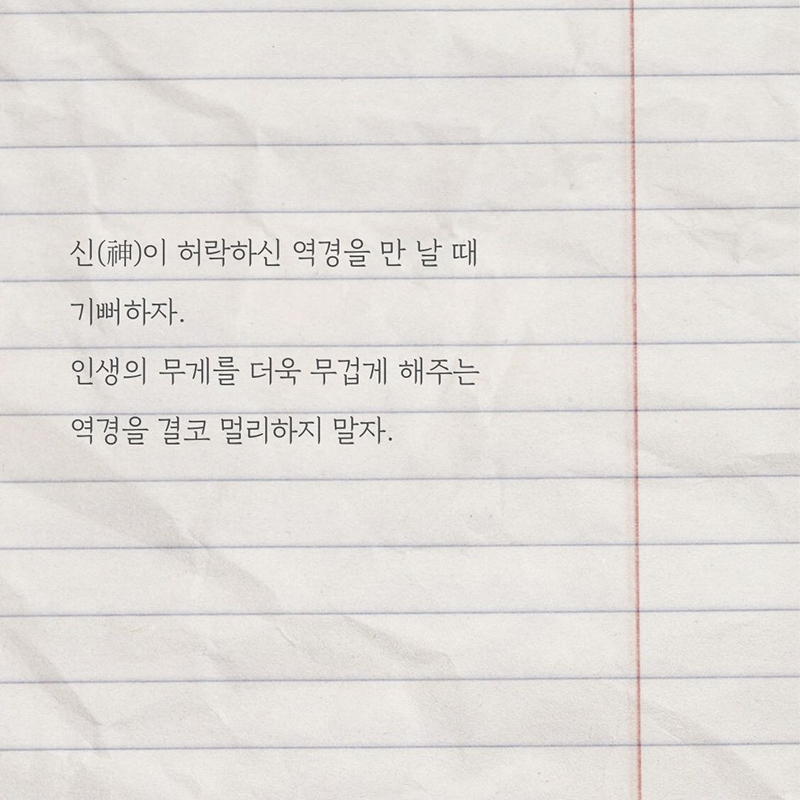 신(神)이 허락하신 역경을 만 날 때
기뻐하자.
인생의 무게를 더욱 무겁게 해주는
역경을 결코 멀리하지 말자.